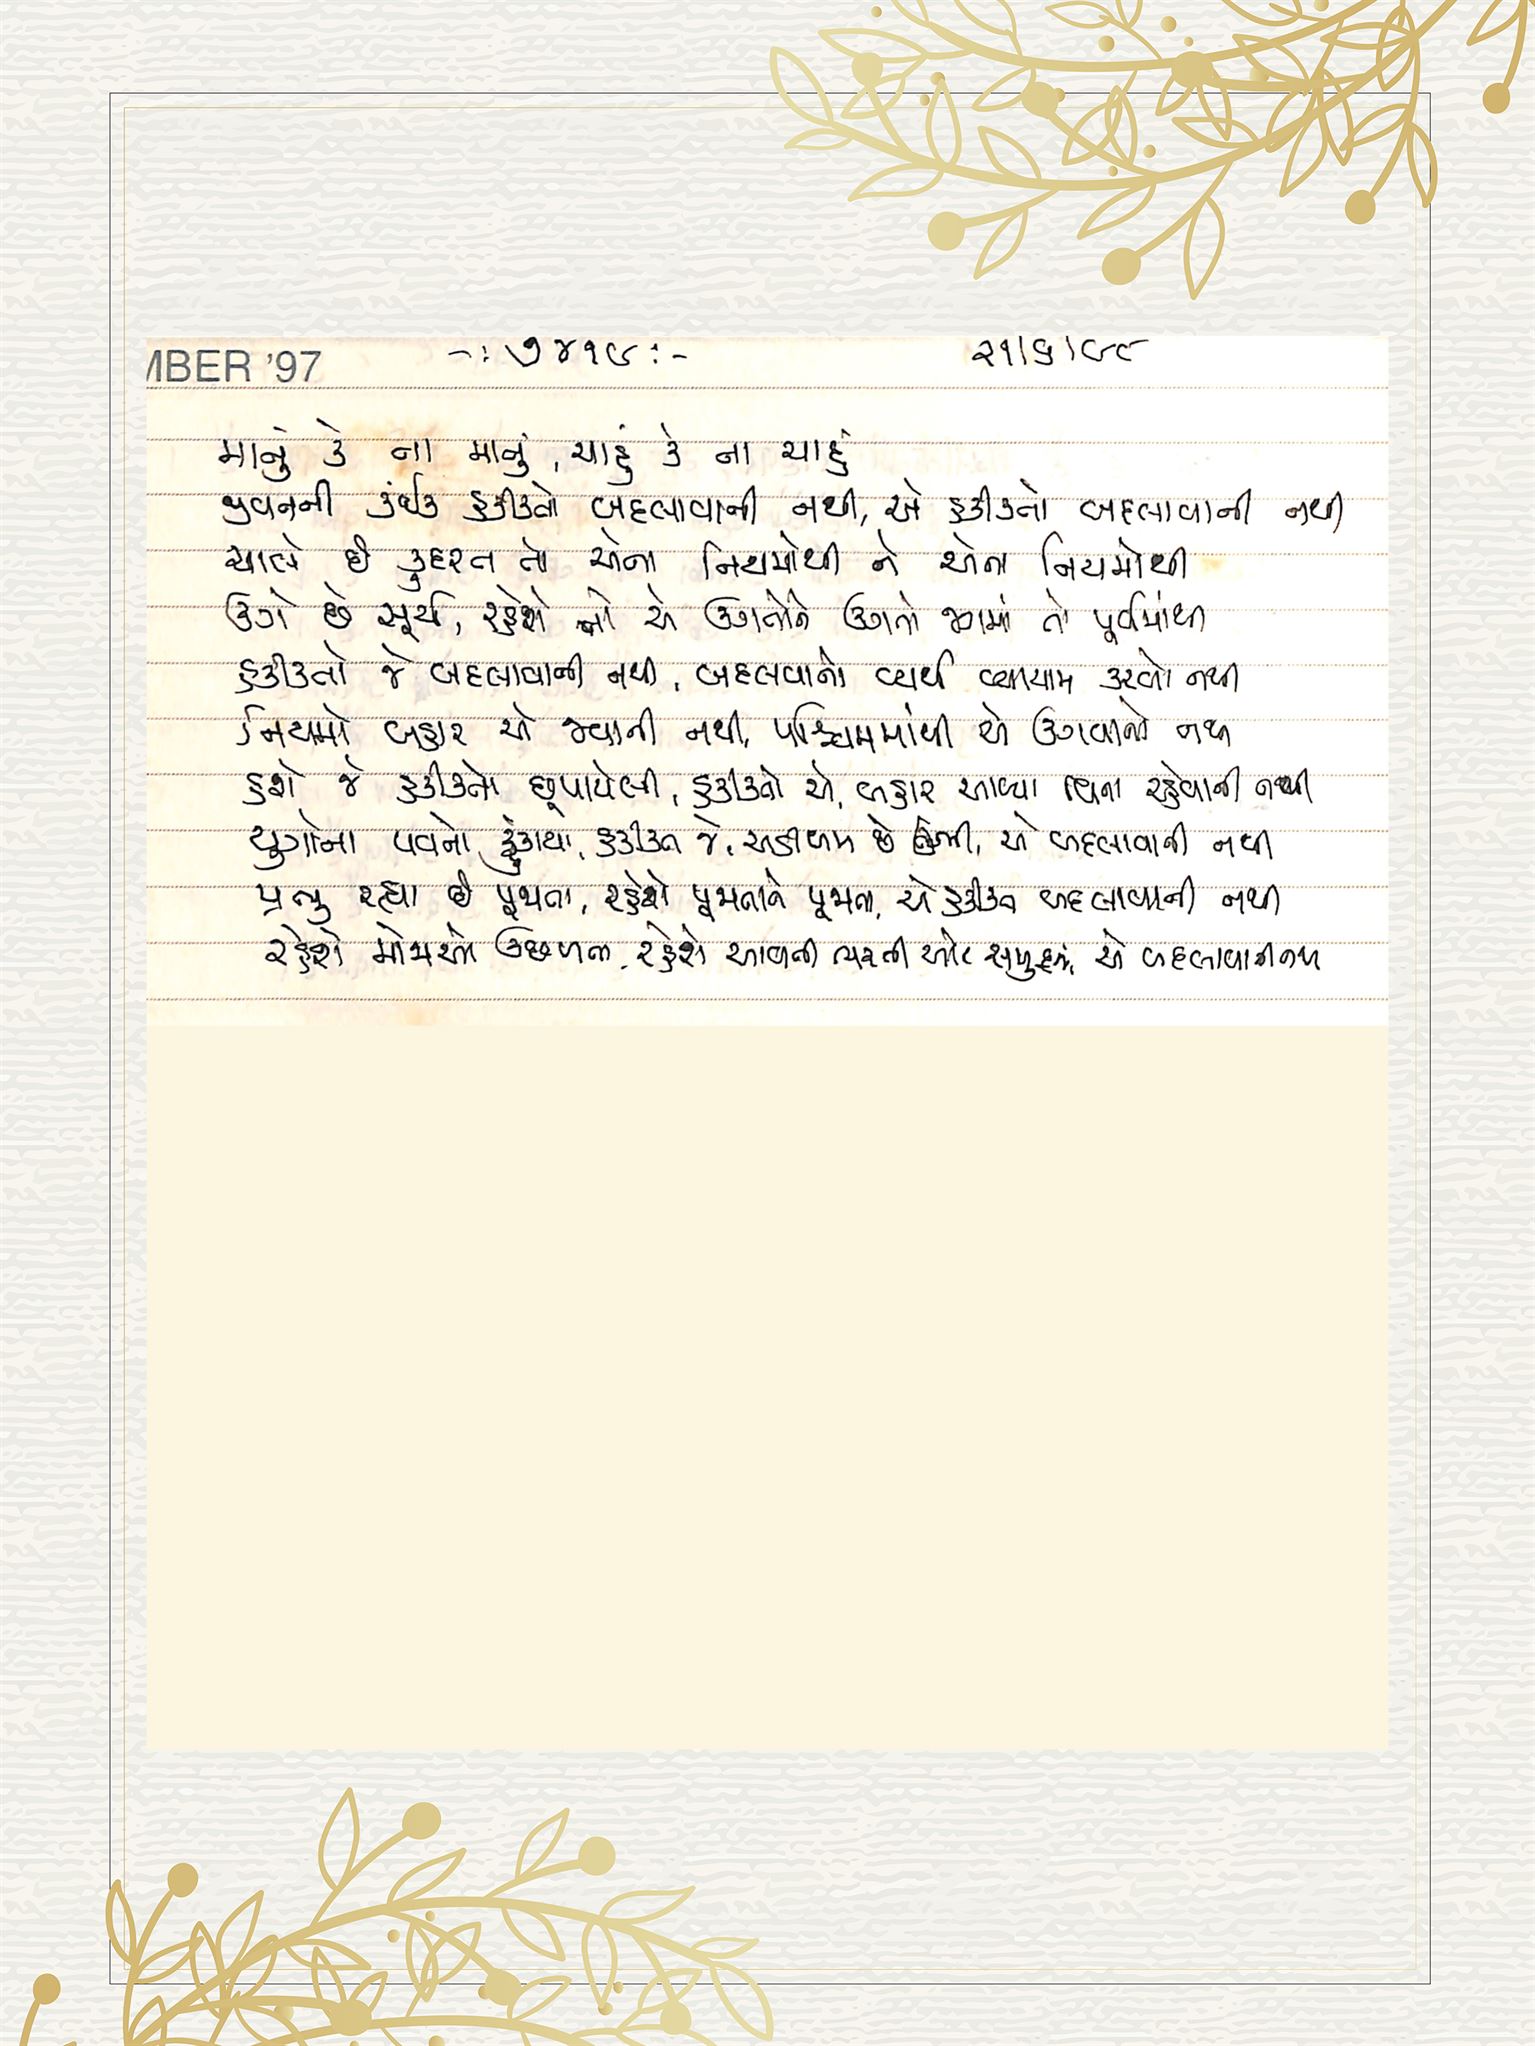 MBER '97 -: ૭૪૧૯ :- ૨૧/૬/૯૯
માનું કે ના માનું, ચાહું કે ના ચાહું
જીવનની કંઈક હકીકતો બદલાવાની નથી, એ હકીકતો બદલાવાની નથી
ચાલે છે કુદરત તો એના નિયમોથી ને એના નિયમોથી
ઉગે છે સૂર્ય, રહેશે એ ઉગતોને ઉગતો જગમાં તો પૂર્વમાંથી
હકીકતો જે બદલાવાની નથી, બદલવાનો વ્યર્થ વ્યાયામ કરવો નથી
નિયમો બહાર એ જવાની નથી, પશ્ચિમમાંથી એ ઉગવાનો નથી
હશે જે હકીકતો છૂપાયેલી, હકીકતો એ, બહાર આવ્યા વિના રહેવાની નથી
યુગોના પવનો ફૂંકાયા, હકીકત જે, અડીખમ છે ઊભી, એ બદલાવાની નથી
પ્રભુ રહ્યા છે પૂજાતા, રહેશે પૂજાતાને પૂજાતા, એ હકીકત બદલાવાની નથી
રહેશે મોજાઓ ઉછળતા, રહેશે આવતી ભરતી ઓટ સમુદ્રમાં, એ બદલાવાની નથી